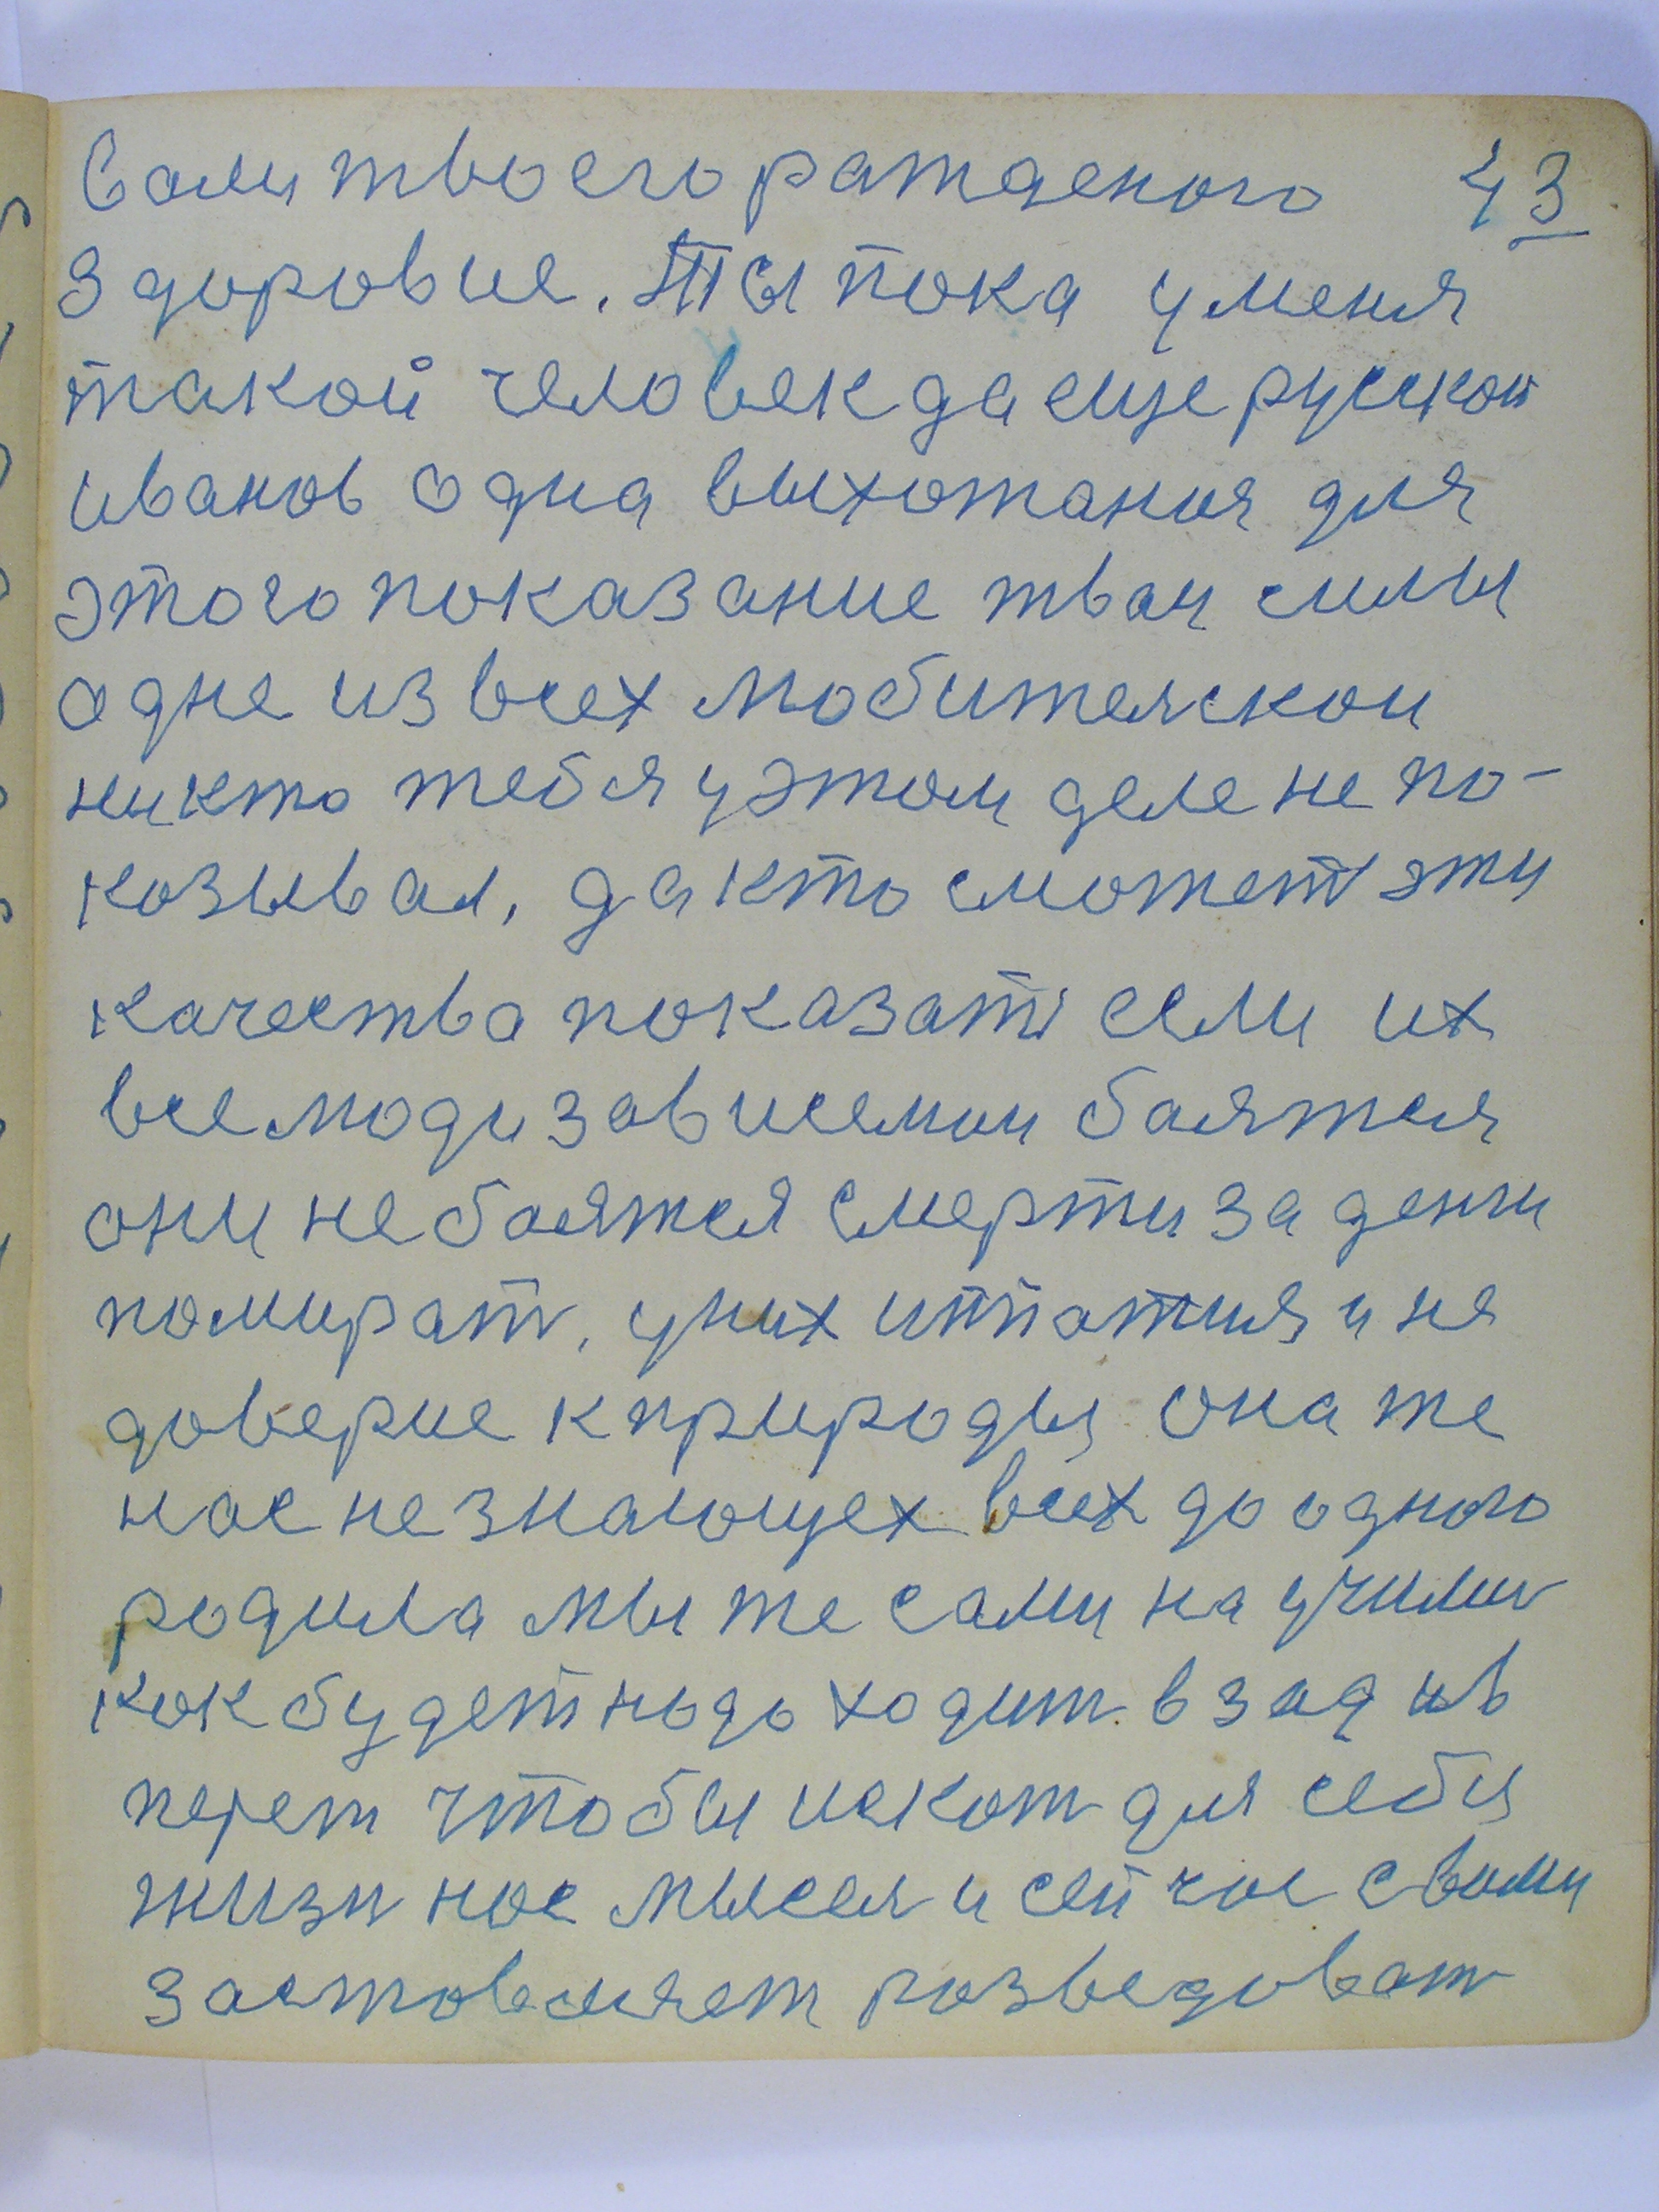 Самитвоегоратденого 43
здоровие. Ты пока уменя
такой человек да еще рускои
иванов одна выхотания для
этого показание тваи силы
одне из всех любителскои
никто тебя уэтом деле не по-
козывал, да кто сможет эти
качества показати если их
все люди зависемои баятся
они небаятся смерти за денги
помират, уних иппатия и не
доверие кприроды она же
нас незнающех всех до одного
родила мы же сами научили
кок будет нодо ходит. взад ив
перет чтобы искот для себя
жизн нос мысея и сейчос своими
застовеляет розведоват